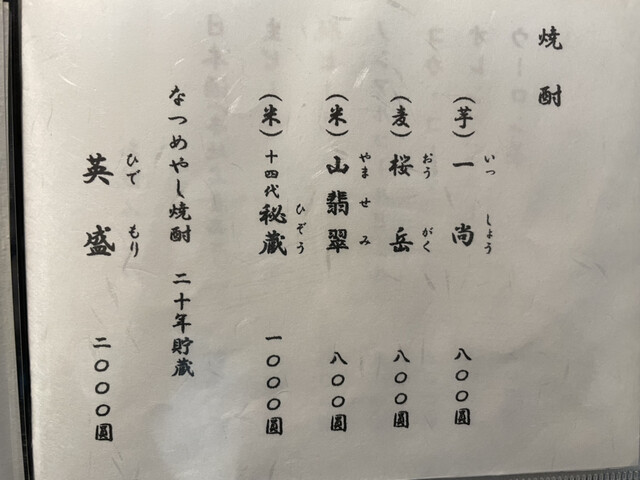 焼酎
(芋)一尚 八〇〇圓
いっしょう
(麦)桜岳 八〇〇圓
おうがく
(米)山翡翠 八〇〇圓
やませみ
(米)十四代秘蔵 一〇〇〇圓
ひぞう
なつめやし焼酎 二十年貯蔵
英盛 二〇〇〇圓
ひでもり